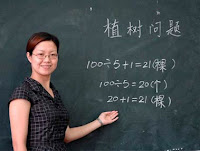 植树问题
100÷5+1=21(棵)
100÷5=20(个)
20+1=21(棵)